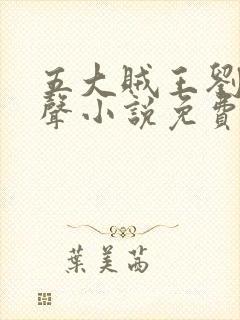 五大賊王劉
聲小說免費
葉美茜